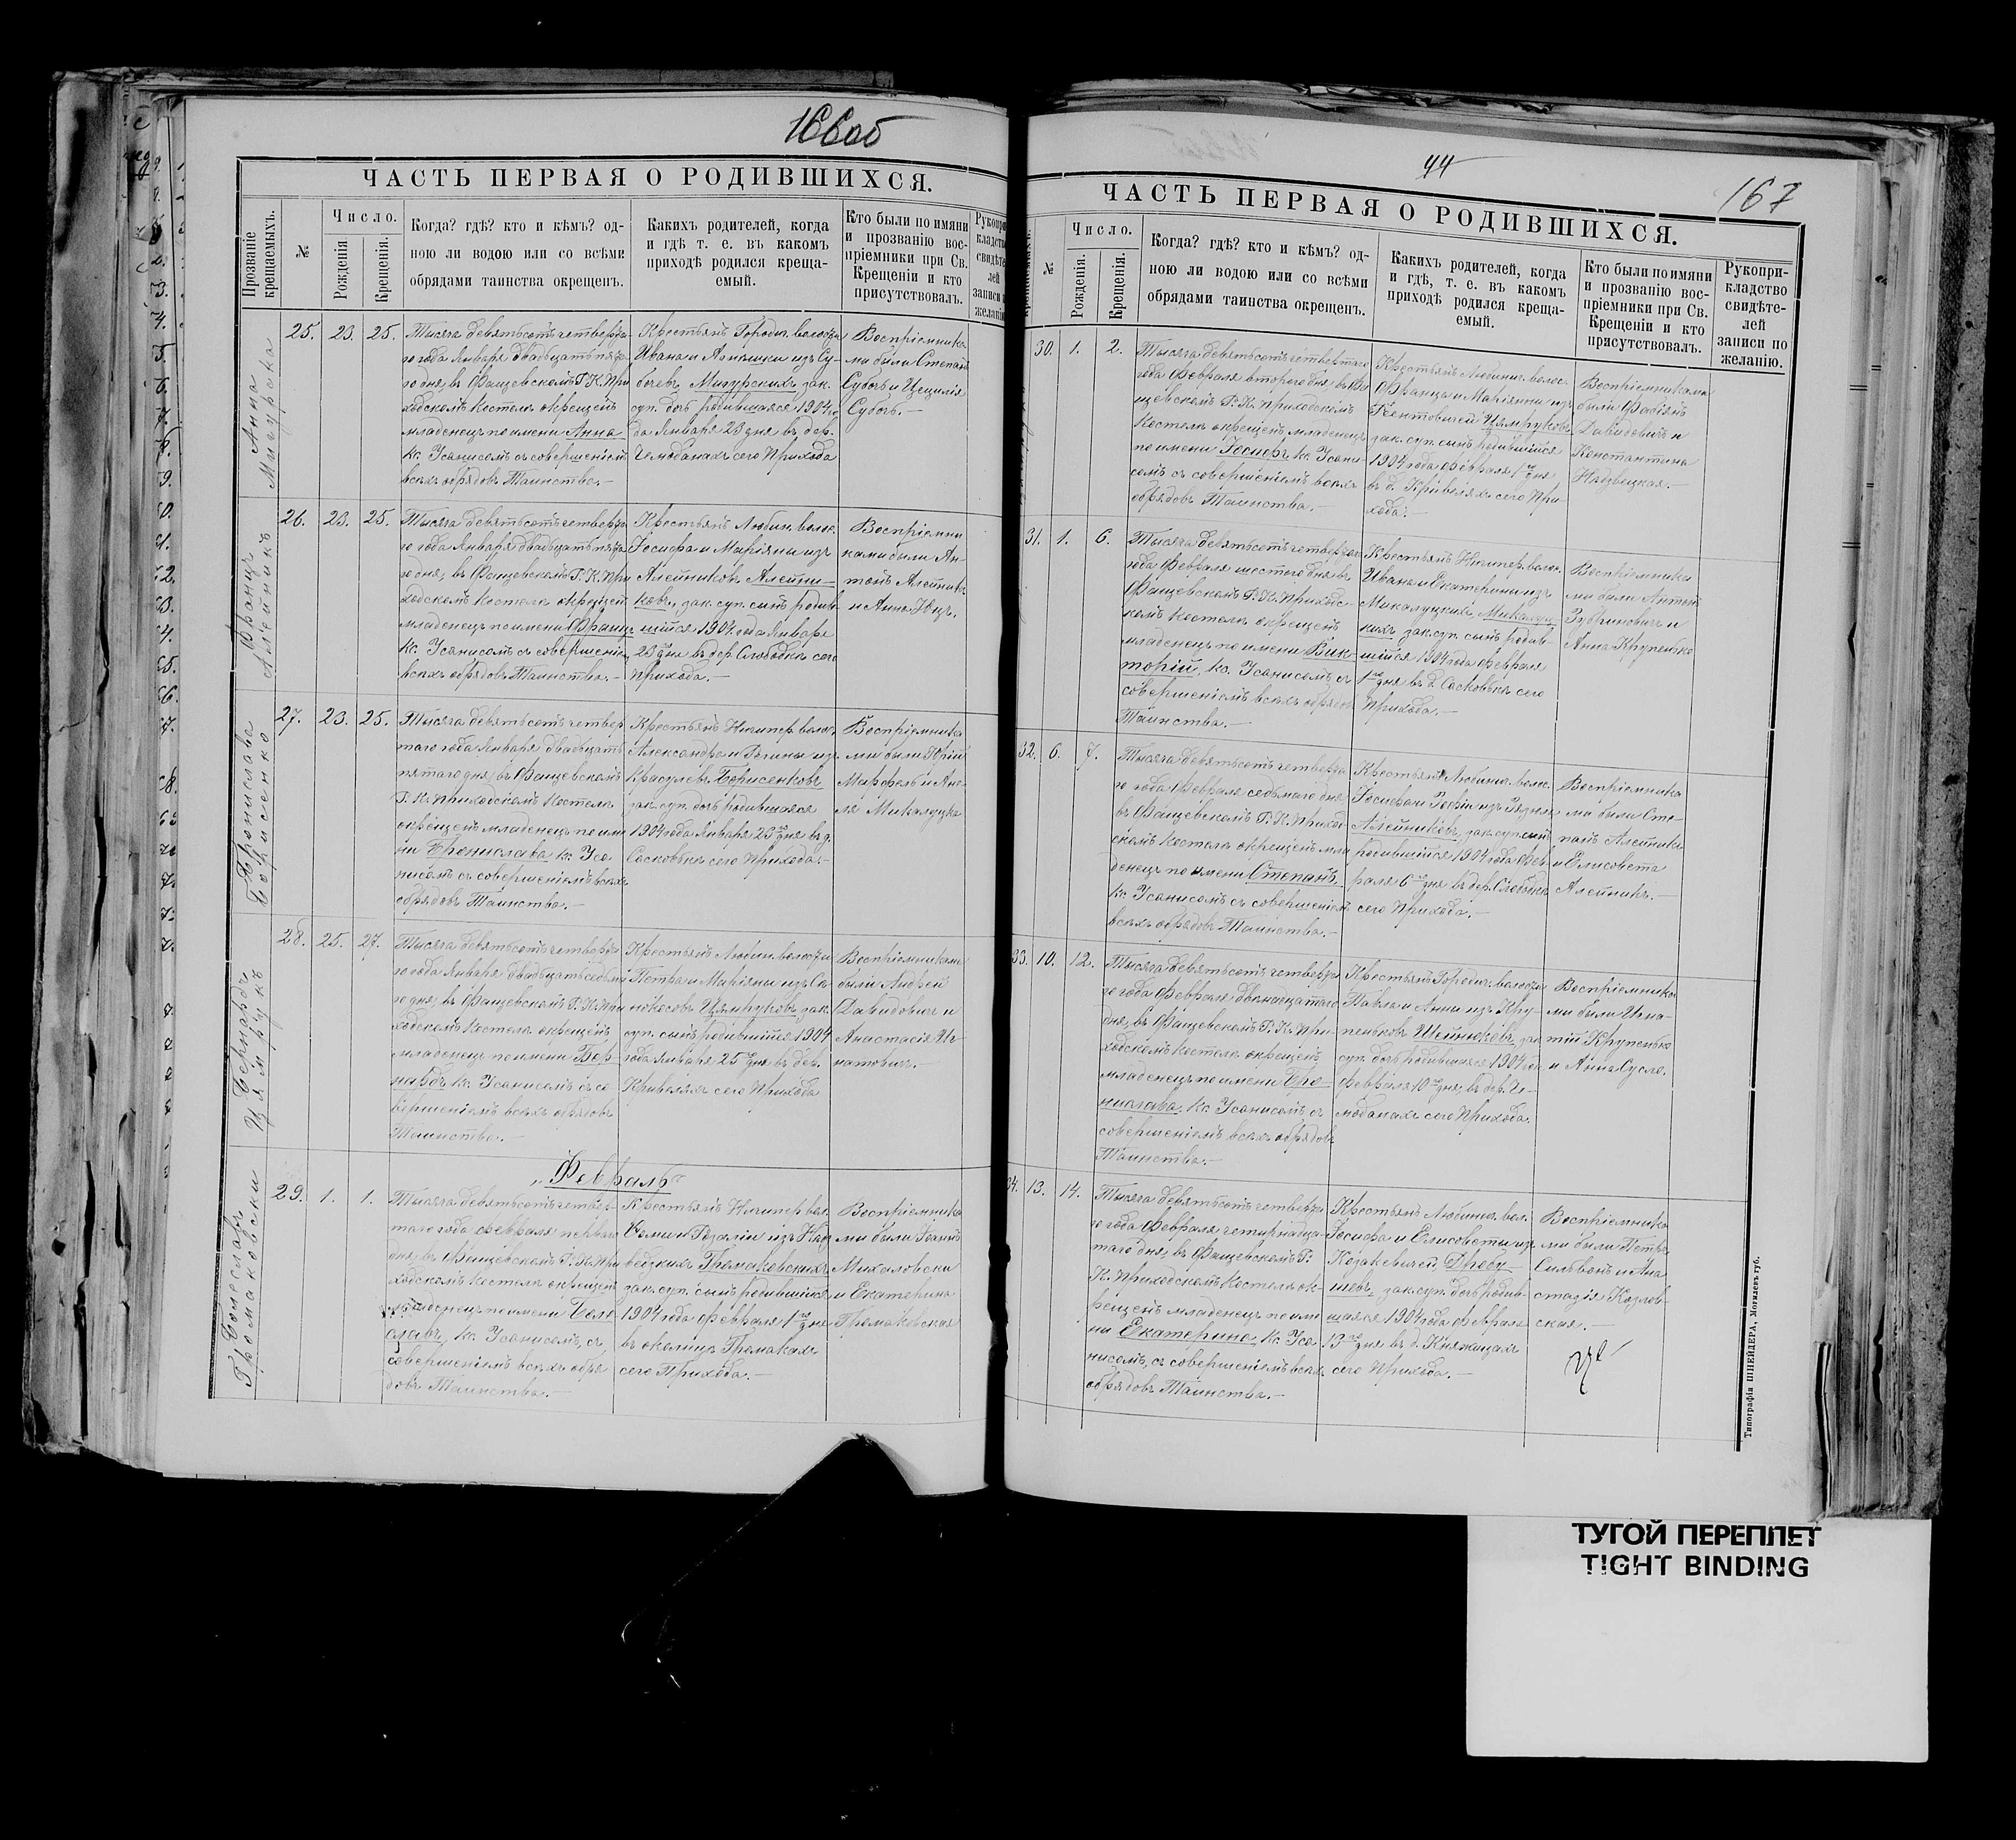 166об
ЧАСТЬ ПЕРВАЯ О РОДИВШИХСЯ.
Прозваніе крещаемыхъ.
№
Число.
Рожденія
Крещенія.
Когда? гдѣ? кто и кѣмъ? од-
ною ли водою или со всѣми
обрядами таинства окрещенъ.
Какихъ родителей, когда
и гдѣ т. е. въ какомъ
приходѣ родился креща-
емый.
Кто были по имяни
и прозванію вос-
пріемники при Св.
Крещеніи и кто
присутствовалъ.
Анна
Мигурска
25. 23. 25.
Тысяча девятьсотъ четверта-
го года Января двадцать пята-
го дня, въ Фащевскомъ Р. К. При
ходскомъ Костелѣ окрещенъ
младенецъ по имени Анна
кс. Усанисомъ съ совершеніемъ
всѣхъ обрядовъ Таинства.—
Крестьянъ Городи. волости
Ивана и из Су-
бочевъ, Мигурскихъ зак.
суп. дочь родившаяся 1904 го
да Января 23 дня въ дер.
Чемоданахъ сего Прихода
Воспріемника-
ми были Степанъ
Суботь и Цецилія
Суботь.—
Францъ
Алейникъ
26. 23. 25.
Тысяча девятьсотъ четверта-
го года Января двадцать пята-
го дня, въ Фащевскомъ Р. К. При
ходскомъ Костелѣ окрещенъ
младенецъ по имени Францъ
кс. Усанисомъ съ совершеніемъ
всѣхъ обрядовъ Таинства.—
Крестьянъ Любин. волос.
Іосифа и Маріяны изъ
Алейниковъ Алейни-
ковъ, зак. суп. сынъ родив-
шійся 1904 года Января
23 дня въ дер. Слободкѣ сего
Прихода.—
Воспріемни
ками были Ан-
тонъ Алейникъ
и Анна
Бронислава
Борисенко
27. 23. 25.
Тысяча девятьсотъ четвер
таго года Января двадцать
пятаго дня, въ Фащевскомъ
Р. К. Приходскомъ Костелѣ
окрещенъ младенецъ по име
ни Бронислава кс. Уса
нисомъ съ совершеніемъ всѣхъ
обрядовъ Таинства.—
Крестьянъ Нигипер. волос.
Александра и Регины изъ
Красулевъ, Борисенковъ
зак. суп. дочь родившаяся
1904 года Января 23 дня въ д.
Сасковкѣ сего Прихода.—
Воспріемника
ми были Юрій
и Ане-
ля Микалуцка
Бернардъ
Цямрукъ
28. 25. 27.
Тысяча девятьсотъ четверта
го года Января двадцать седьма
го дня, въ Фащевскомъ Р. К. При
ходскомъ Костелѣ окрещенъ
младенецъ по имени Бер-
нардъ кс. Усанисомъ съ со-
вершеніемъ всѣхъ обрядовъ
Таинства.—
Крестьянъ Любин. волости
Петра и Маріяны изъ
Цямруковъ, зак.
суп. сынъ родившійся 1904
года Января 25 дня въ дер.
Кривеляхъ сего Прихода
Воспріемниками
были Андрей
Давидовичъ и
Анастасія Иг-
натовичъ.
„Февраль“
Болеславъ
Громаковски
29. 1. 1.
Тысяча девятьсотъ четвер-
таго года Февраля перваго
дня, въ Фащевскомъ Р. К. При
ходскомъ Костелѣ окрещенъ
младенецъ по имени Боле
славъ, кс. Усанисомъ, съ
совершеніемъ всѣхъ обря
довъ Таинства.—
Крестьянъ Нигипер. вол.
и Розаліи изъ Над
вецкихъ Громаковскихъ
зак. суп. сынъ родившійся
1904 года Февраля 1 дня
въ околицѣ Громакахъ
сего Прихода.—
Воспріемника
ми были Іоаннъ
Михаловски
и Екатерина
Громаковская
44
167
ЧАСТЬ ПЕРВАЯ О РОДИВШИХСЯ.
№
Число.
Рожденія.
Крещенія.
Когда? гдѣ? кто и кѣмъ? од-
ною ли водою или со всѣми
обрядами таинства окрещенъ.
Какихъ родителей, когда
и гдѣ, т. е. въ какомъ
приходѣ родился креща-
емый.
Кто были по имяни
и прозванію вос-
пріемники при Св.
Крещеніи и кто
присутствовалъ.
Рукопри-
кладство
свидѣте-
лей
записи по
желанію.
30. 1. 2.
Тысяча девятьсотъ четвертаго
года Февраля второго дня, въ Фа
щевскомъ Р. К. Приходскомъ
Костелѣ окрещенъ младенецъ
по имени Іосифъ кс. Усани
сомъ съ совершеніемъ всѣхъ
обрядовъ Таинства.—
Крестьянъ Любинич. волос.
Франца и Маріянны изъ
Цямруковъ
зак. суп. сынъ родившійся
1904 года Февраля 1 дня
въ д. Кривеляхъ сего При
хода.—
Воспріемниками
были Фабіянъ
Давидовичъ и
Константина
Надвецкая.—
31. 1. 6.
Тысяча девятьсотъ четвертаго
года Февраля шестого дня въ
Фащевскомъ Р. К. Приход-
скомъ Костелѣ окрещенъ
младенецъ по имени Вик-
торій, кс. Усанисомъ съ
совершеніемъ всѣхъ обрядовъ
Таинства.—
Крестьянъ Нигипер. волос.
Ивана и Екатерины изъ
Микалуцкихъ, Микалуц-
кихъ зак. суп. сынъ родив-
шійся 1904 года Февраля
1 дня въ д. Сасковкѣ сего
Прихода.—
Воспріемника
ми были Антонъ
и
Анна Крупенько
32. 6. 7.
Тысяча девятьсотъ четверта
го года Февраля седьмого дня
въ Фащевскомъ Р. К. Приход-
скомъ Костелѣ окрещенъ мла
денецъ по имени Степанъ
кс. Усанисомъ съ совершеніемъ
всѣхъ обрядовъ Таинства.—
Крестьянъ Любинич. волос.
Іосифа и Зофіи изъ
Алейниковъ, зак. суп. сынъ
родившійся 1904 года Фев-
раля 6 дня въ дер. Слободкѣ
сего Прихода.—
Воспріемника
ми были Сте-
панъ Алейникъ
и Елисовета
Алейникъ.—
33. 10. 12.
Тысяча девятьсотъ четверта
го года Февраля двѣнадцатаго
дня, въ Фащевскомъ Р. К. При-
ходскомъ Костелѣ окрещенъ
младенецъ по имени Бро-
нислава, кс. Усанисомъ съ
совершеніемъ всѣхъ обрядовъ
Таинства.—
Крестьянъ Городич. волости
Павла и Анны изъ Кру-
пеньковъ Шейнюковъ, зак
суп. дочь родившаяся 1904 года
Февраля 10 дня, въ дер. Че-
моданахъ сего Прихода.
Воспріемника
ми были Игна-
тій Крупенько
и Анна Сусло.
34. 13. 14.
Тысяча девятьсотъ четверта
го года Февраля четырнадца-
таго дня, въ Фащевскомъ Р.
К. Приходскомъ Костелѣ ок-
рещенъ младенецъ по име
ни Екатерина кс. Уса
нисомъ, съ совершеніемъ всѣхъ
обрядовъ Таинства.—
Крестьянъ Любинич. вол.
Іосифа и Елисоветы изъ
Козакевичей
зак. суп. дочь родив-
шаяся 1904 года Февраля
13 дня въ д. Княжицахъ
сего Прихода.—
Воспріемника
ми были Петръ
и Ана
стазія Козлов-
ская.—
Типографія ШНЕЙДЕРА, Могилевъ губ.
ТУГОЙ ПЕРЕПЛЕТ
TIGHT BINDING